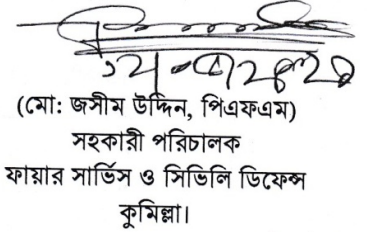 (মো: জসীম উদ্দিন, পিএফএম)
সহকারী পরিচালক
ফায়ার সার্ভিস ও সিভিলি ডিফেন্স
কুমিল্লা।